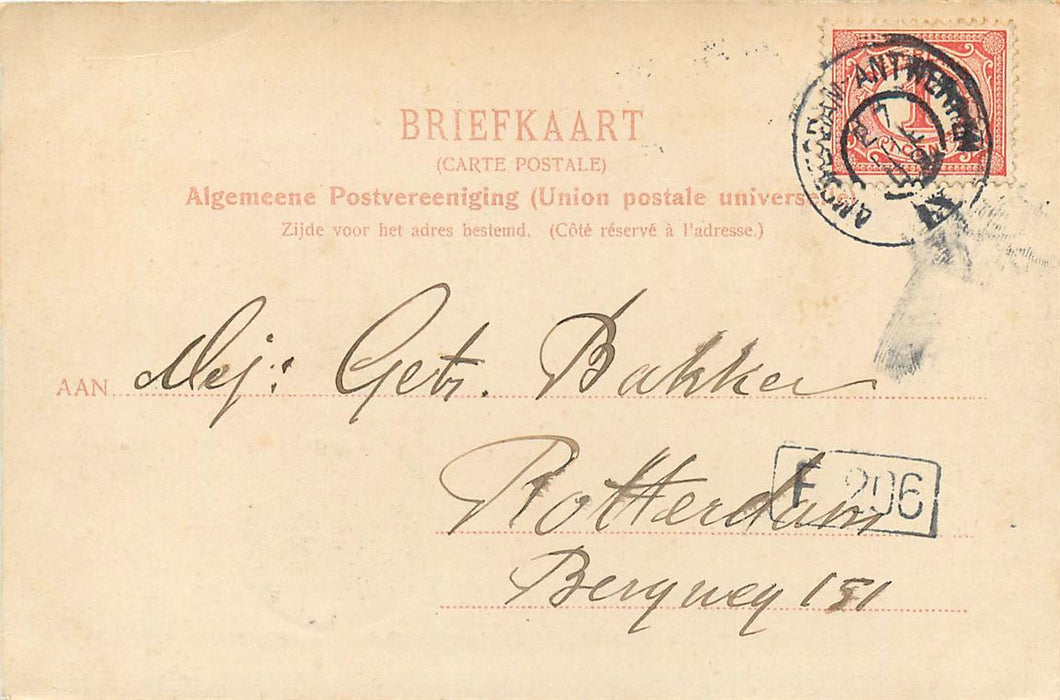 BRIEFKAART
(CARTE POSTALE)
Algemeene Postvereeniging (Union postale universelle)
Zijde voor het adres bestemd. (Côté réservé à l'adresse.)
AMSTERDAM-ANTWERPEN
1
AAN Mej: Getr. Bakker
Rotterdam
F 206
Bergweg 181